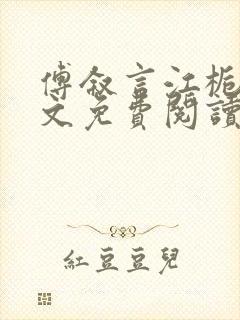 傅敘言江梔
文免費閱讀
紅豆豆兒